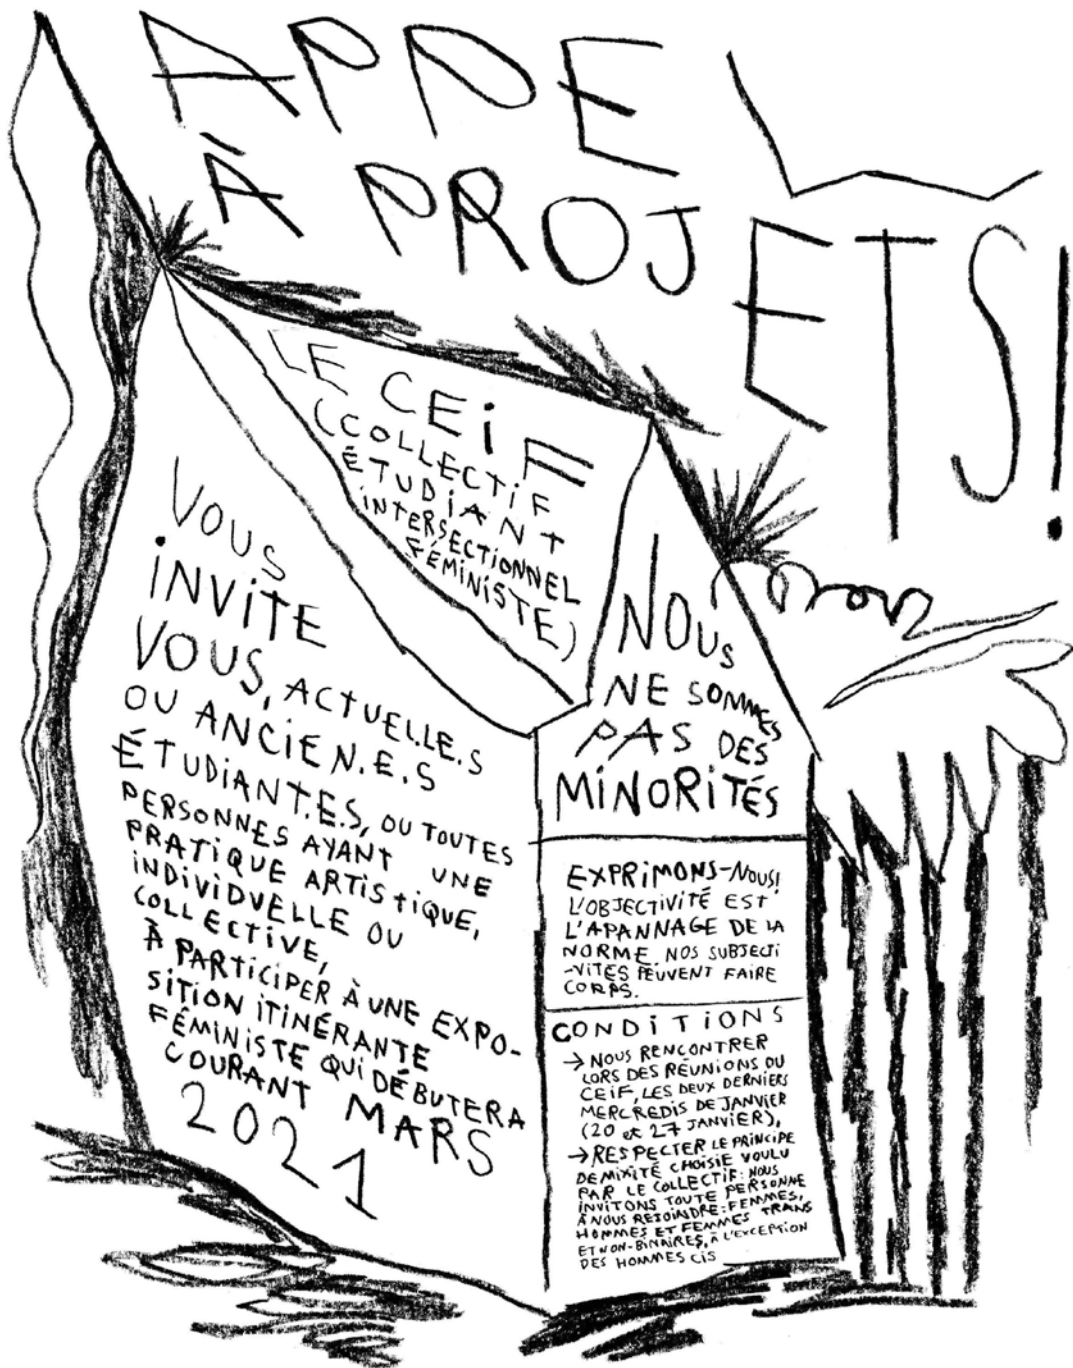 APPEL
À PROJETS!
LE CEiF
(COLLECTiF
ÉTUDiANT
iNTERSECTIONNEL
FÉMINISTE)
VOUS
iNViTE
VOUS, ACTUEL.LE.S
OU ANCIEN.E.S
ÉTUDIANT.E.S, OU TOUTES
PERSONNES AYANT UNE
PRATIQUE ARTISTIQUE,
INDIVIDUELLE OU
COLLECTIVE,
À PARTICIPER À UNE EXPO-
SITION ITINÉRANTE
FÉMINISTE QUI DÉBUTERA
COURANT MARS
2021
NOUS
NE SOMMES
PAS DES
MINORITÉS
EXPRIMONS-NOUS!
L'OBJECTIVITÉ EST
L'APANNAGE DE LA
NORME. NOS SUBJECTI
-VITÉS PEUVENT FAIRE
CORPS.
CONDITIONS
→ NOUS RENCONTRER
LORS DES RÉUNIONS DU
CEiF, LES DEUX DERNIERS
MERCREDIS DE JANVIER
(20 et 27 JANVIER),
→ RESPECTER LE PRINCIPE
DE MIXITÉ CHOISIE VOULU
PAR LE COLLECTIF: NOUS
INVITONS TOUTE PERSONNE
À NOUS REJOINDRE: FEMMES,
HOMMES ET FEMMES TRANS
ET NON-BINAIRES, À L'EXCEPTION
DES HOMMES CIS